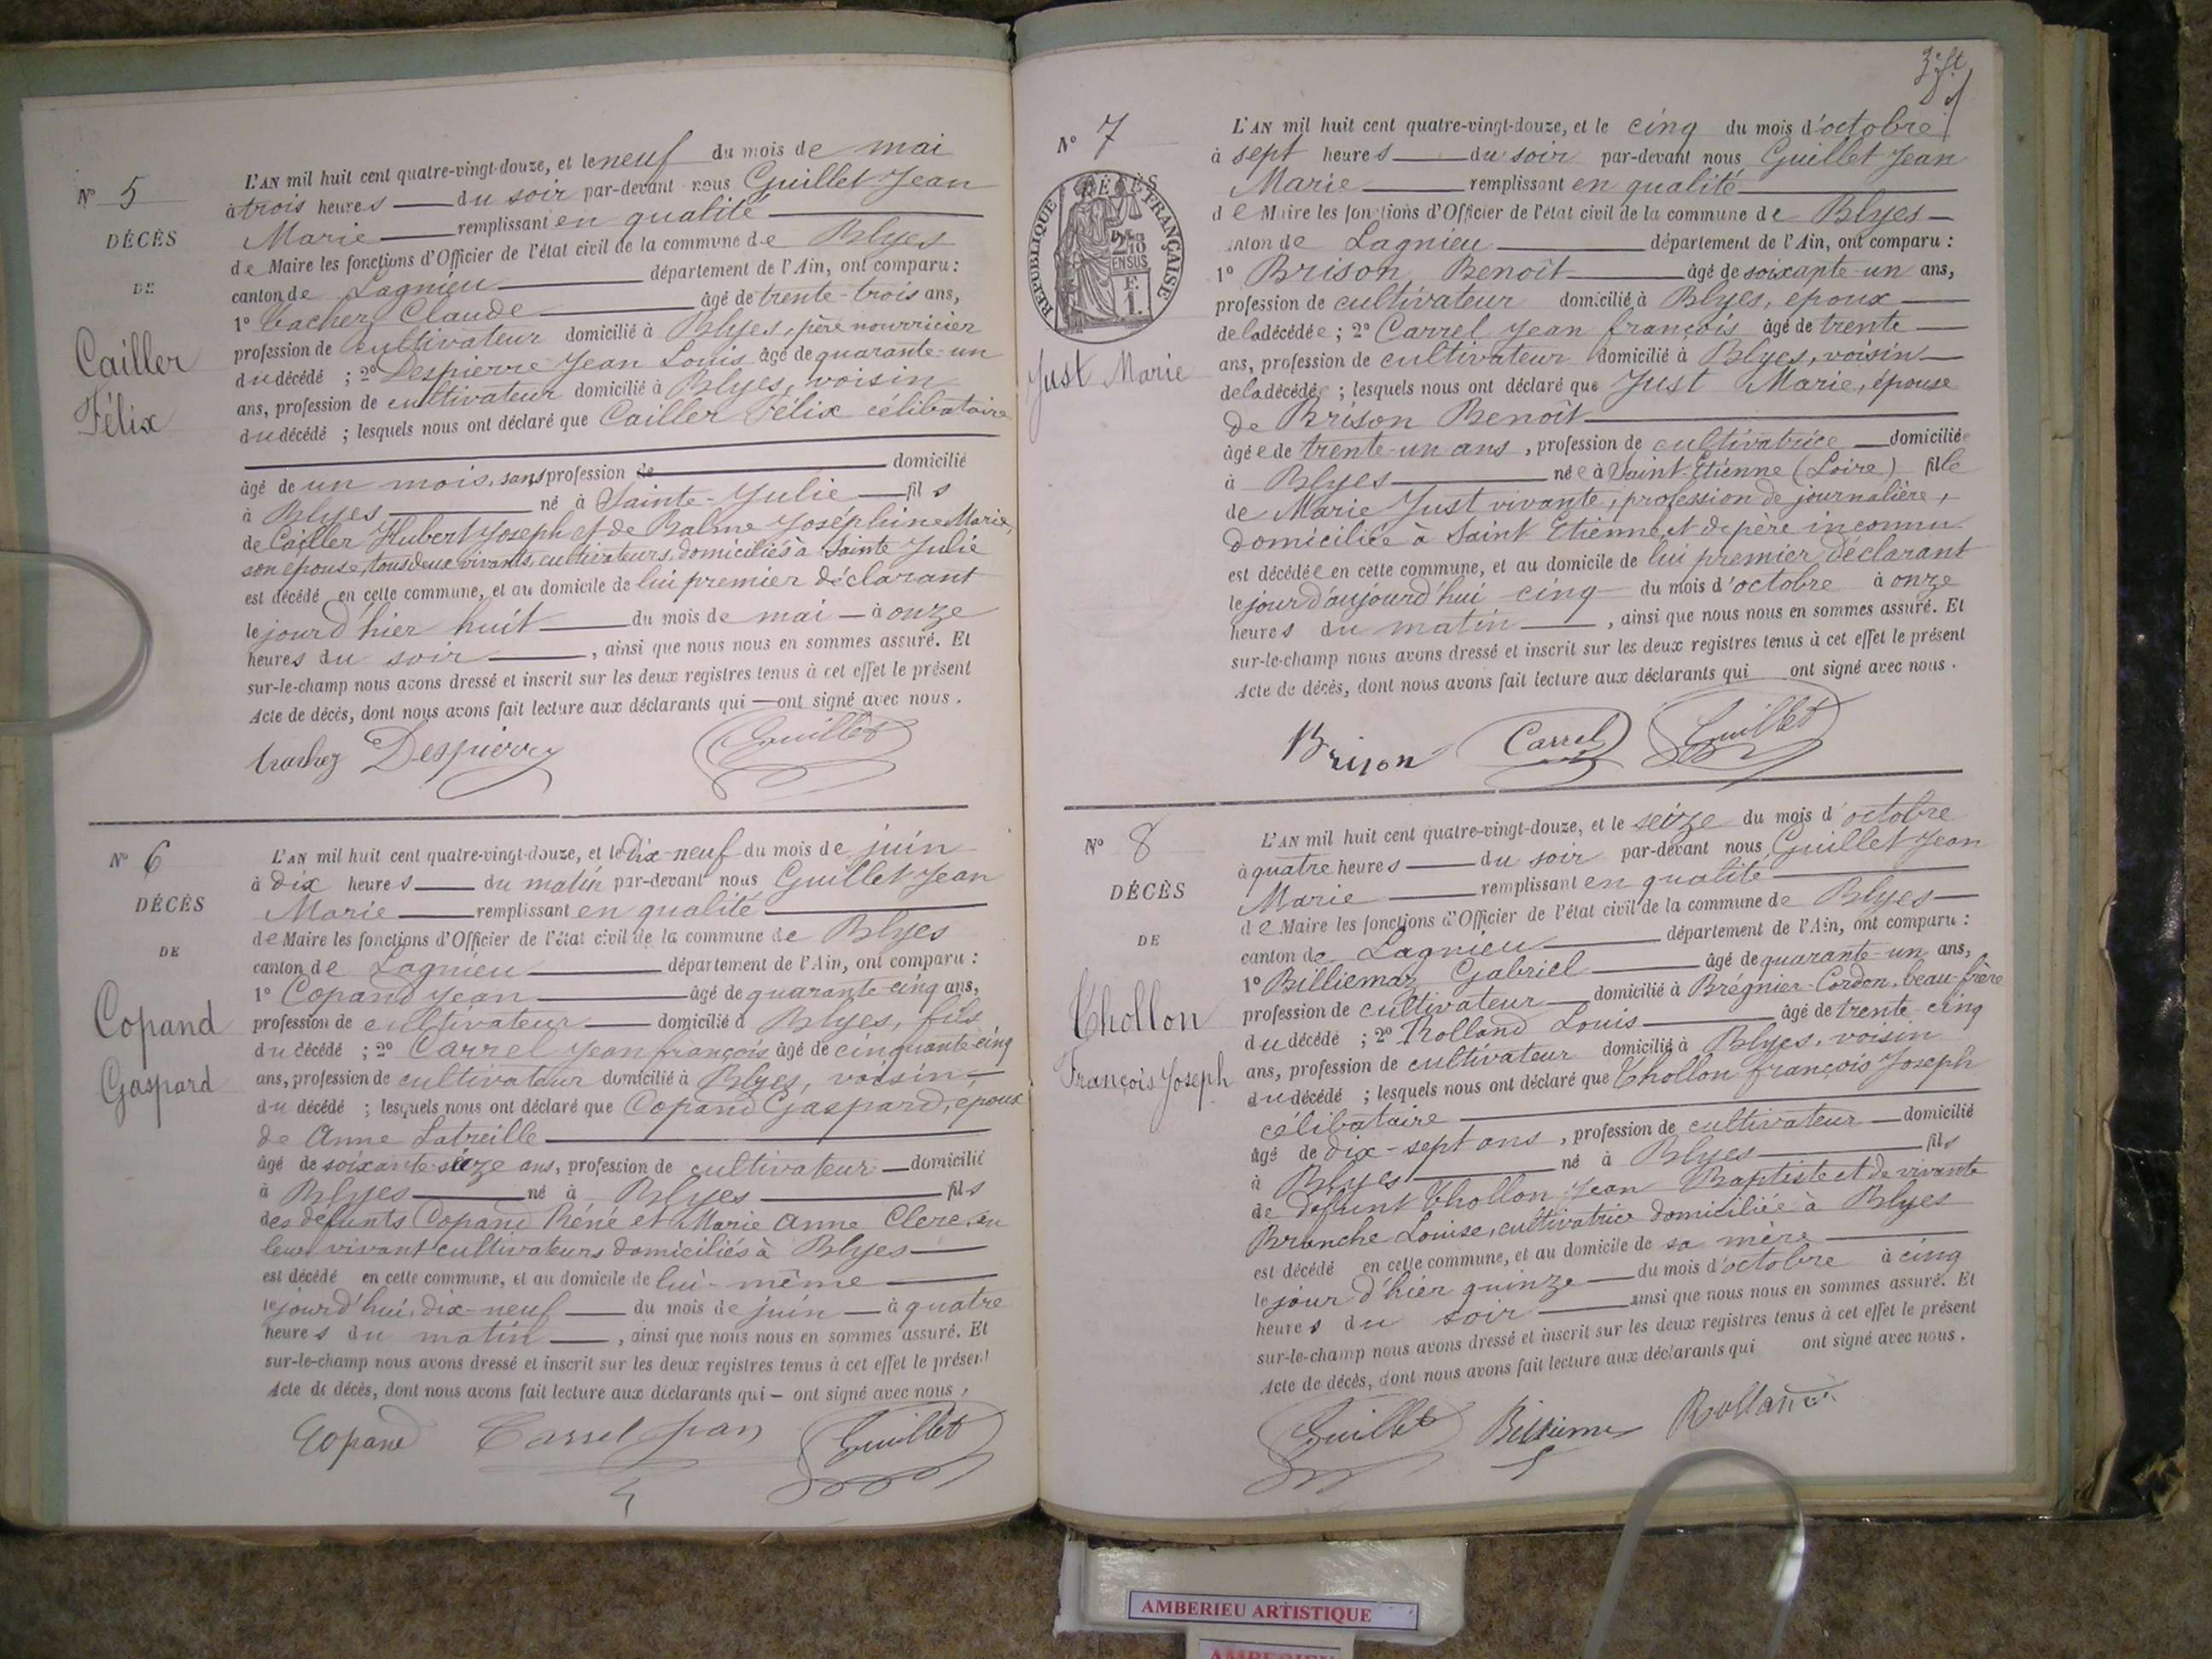 N° 5
DÉCÈS
DE
Cailler
Félix
L'AN mil huit cent quatre-vingt-douze, et le neuf du mois de mai
à trois heures du soir par-devant nous Guillet Jean
Marie remplissant en qualité
de Maire les fonctions d'Officier de l'état civil de la commune de Blyes
canton de Lagnieu département de l'Ain, ont comparu :
1° Vacher Claude âgé de trente-trois ans,
profession de cultivateur domicilié à Blyes, père nourricier
du décédé ; 2° Despierre Jean Louis âgé de quarante-un
ans, profession de cultivateur domicilié à Blyes, voisin
du décédé ; lesquels nous ont déclaré que Cailler Félix célibataire
âgé de un mois, sans profession de domicilié
à Blyes né à Sainte-Julie fils
de Cailler Hubert Joseph et de Balme Joséphine Marie,
son épouse, tous deux vivants, cultivateurs, domiciliés à Sainte Julie
est décédé en cette commune, et au domicile de lui premier déclarant
le jour d'hier huit du mois de mai à onze
heures du soir , ainsi que nous nous en sommes assuré. Et
sur-le-champ nous avons dressé et inscrit sur les deux registres tenus à cet effet le présent
Acte de décès, dont nous avons fait lecture aux déclarants qui ont signé avec nous.
Despierre Guillet
N° 6
DÉCÈS
DE
Copand
Gaspard
L'AN mil huit cent quatre-vingt-douze, et le Dix-neuf du mois de juin
à dix heures du matin par-devant nous Guillet Jean
Marie remplissant en qualité
de Maire les fonctions d'Officier de l'état civil de la commune de Blyes
canton de Lagnieu département de l'Ain, ont comparu :
1° Copand Jean âgé de quarante-cinq ans,
profession de cultivateur domicilié à Blyes, fils
du décédé ; 2° Carrel Jean françois âgé de cinquante-cinq
ans, profession de cultivateur domicilié à Blyes, voisin
du décédé ; lesquels nous ont déclaré que Copand Gaspard, epoux
de Anne Latreille
âgé de soixante-seize ans, profession de cultivateur domicilié
à Blyes né à Blyes fils
des défunts Copand Réné et Marie Anne Clerc, en
leur vivant cultivateurs domiciliés à Blyes
est décédé en cette commune, et au domicile de lui-même
le jourd'hui, dix-neuf du mois de juin à quatre
heures du matin , ainsi que nous nous en sommes assuré. Et
sur-le-champ nous avons dressé et inscrit sur les deux registres tenus à cet effet le présent
Acte de décès, dont nous avons fait lecture aux déclarants qui – ont signé avec nous.
Copand Carrel Jean Guillet
N° 7
RÉPUBLIQUE FRANÇAISE
Just Marie
L'AN mil huit cent quatre-vingt-douze, et le cinq du mois d'octobre
à sept heures du soir par-devant nous Guillet Jean
Marie remplissant en qualité
de Maire les fonctions d'Officier de l'état civil de la commune de Blyes
canton de Lagnieu département de l'Ain, ont comparu :
1° Brison Benoît âgé de soixante-un ans,
profession de cultivateur domicilié à Blyes, epoux
de la décédée ; 2° Carrel Jean françois âgé de trente
ans, profession de cultivateur domicilié à Blyes, voisin
de la décédée ; lesquels nous ont déclaré que Just Marie, épouse
de Brison Benoît
âgée de trente-un ans, profession de cultivatrice domiciliée
à Blyes née à Saint-Etienne (Loire) fille
de Marie Just vivante, profession de journalière,
domiciliée à Saint Etienne, et de père inconnu
est décédée en cette commune, et au domicile de lui premier déclarant
le jour d'aujourd'hui cinq du mois d'octobre à onze
heures du matin , ainsi que nous nous en sommes assuré. Et
sur-le-champ nous avons dressé et inscrit sur les deux registres tenus à cet effet le présent
Acte de décès, dont nous avons fait lecture aux déclarants qui ont signé avec nous.
Brison Carrel Guillet
N° 8
DÉCÈS
DE
Chollon
François Joseph
L'AN mil huit cent quatre-vingt-douze, et le seize du mois d'octobre
à quatre heures du soir par-devant nous Guillet Jean
Marie remplissant en qualité
de Maire les fonctions d'Officier de l'état civil de la commune de Blyes
canton de Lagnieu département de l'Ain, ont comparu :
1° Billiemaz Gabriel âgé de quarante-un ans,
profession de cultivateur domicilié à Brégnier-Cordon, beau-frère
du décédé ; 2° Rolland Louis âgé de trente-cinq
ans, profession de cultivateur domicilié à Blyes, voisin
du décédé ; lesquels nous ont déclaré que Chollon françois Joseph
célibataire
âgé de dix-sept ans, profession de cultivateur domicilié
à Blyes né à Blyes fils
de défunt Chollon Jean Baptiste et de vivante
Branche Louise, cultivatrice domiciliée à Blyes
est décédé en cette commune, et au domicile de sa mère
le jour d'hier quinze du mois d'octobre à cinq
heures du soir ainsi que nous nous en sommes assuré. Et
sur-le-champ nous avons dressé et inscrit sur les deux registres tenus à cet effet le présent
Acte de décès, dont nous avons fait lecture aux déclarants qui ont signé avec nous.
Guillet Rolland
AMBERIEU ARTISTIQUE
AMBERIEU